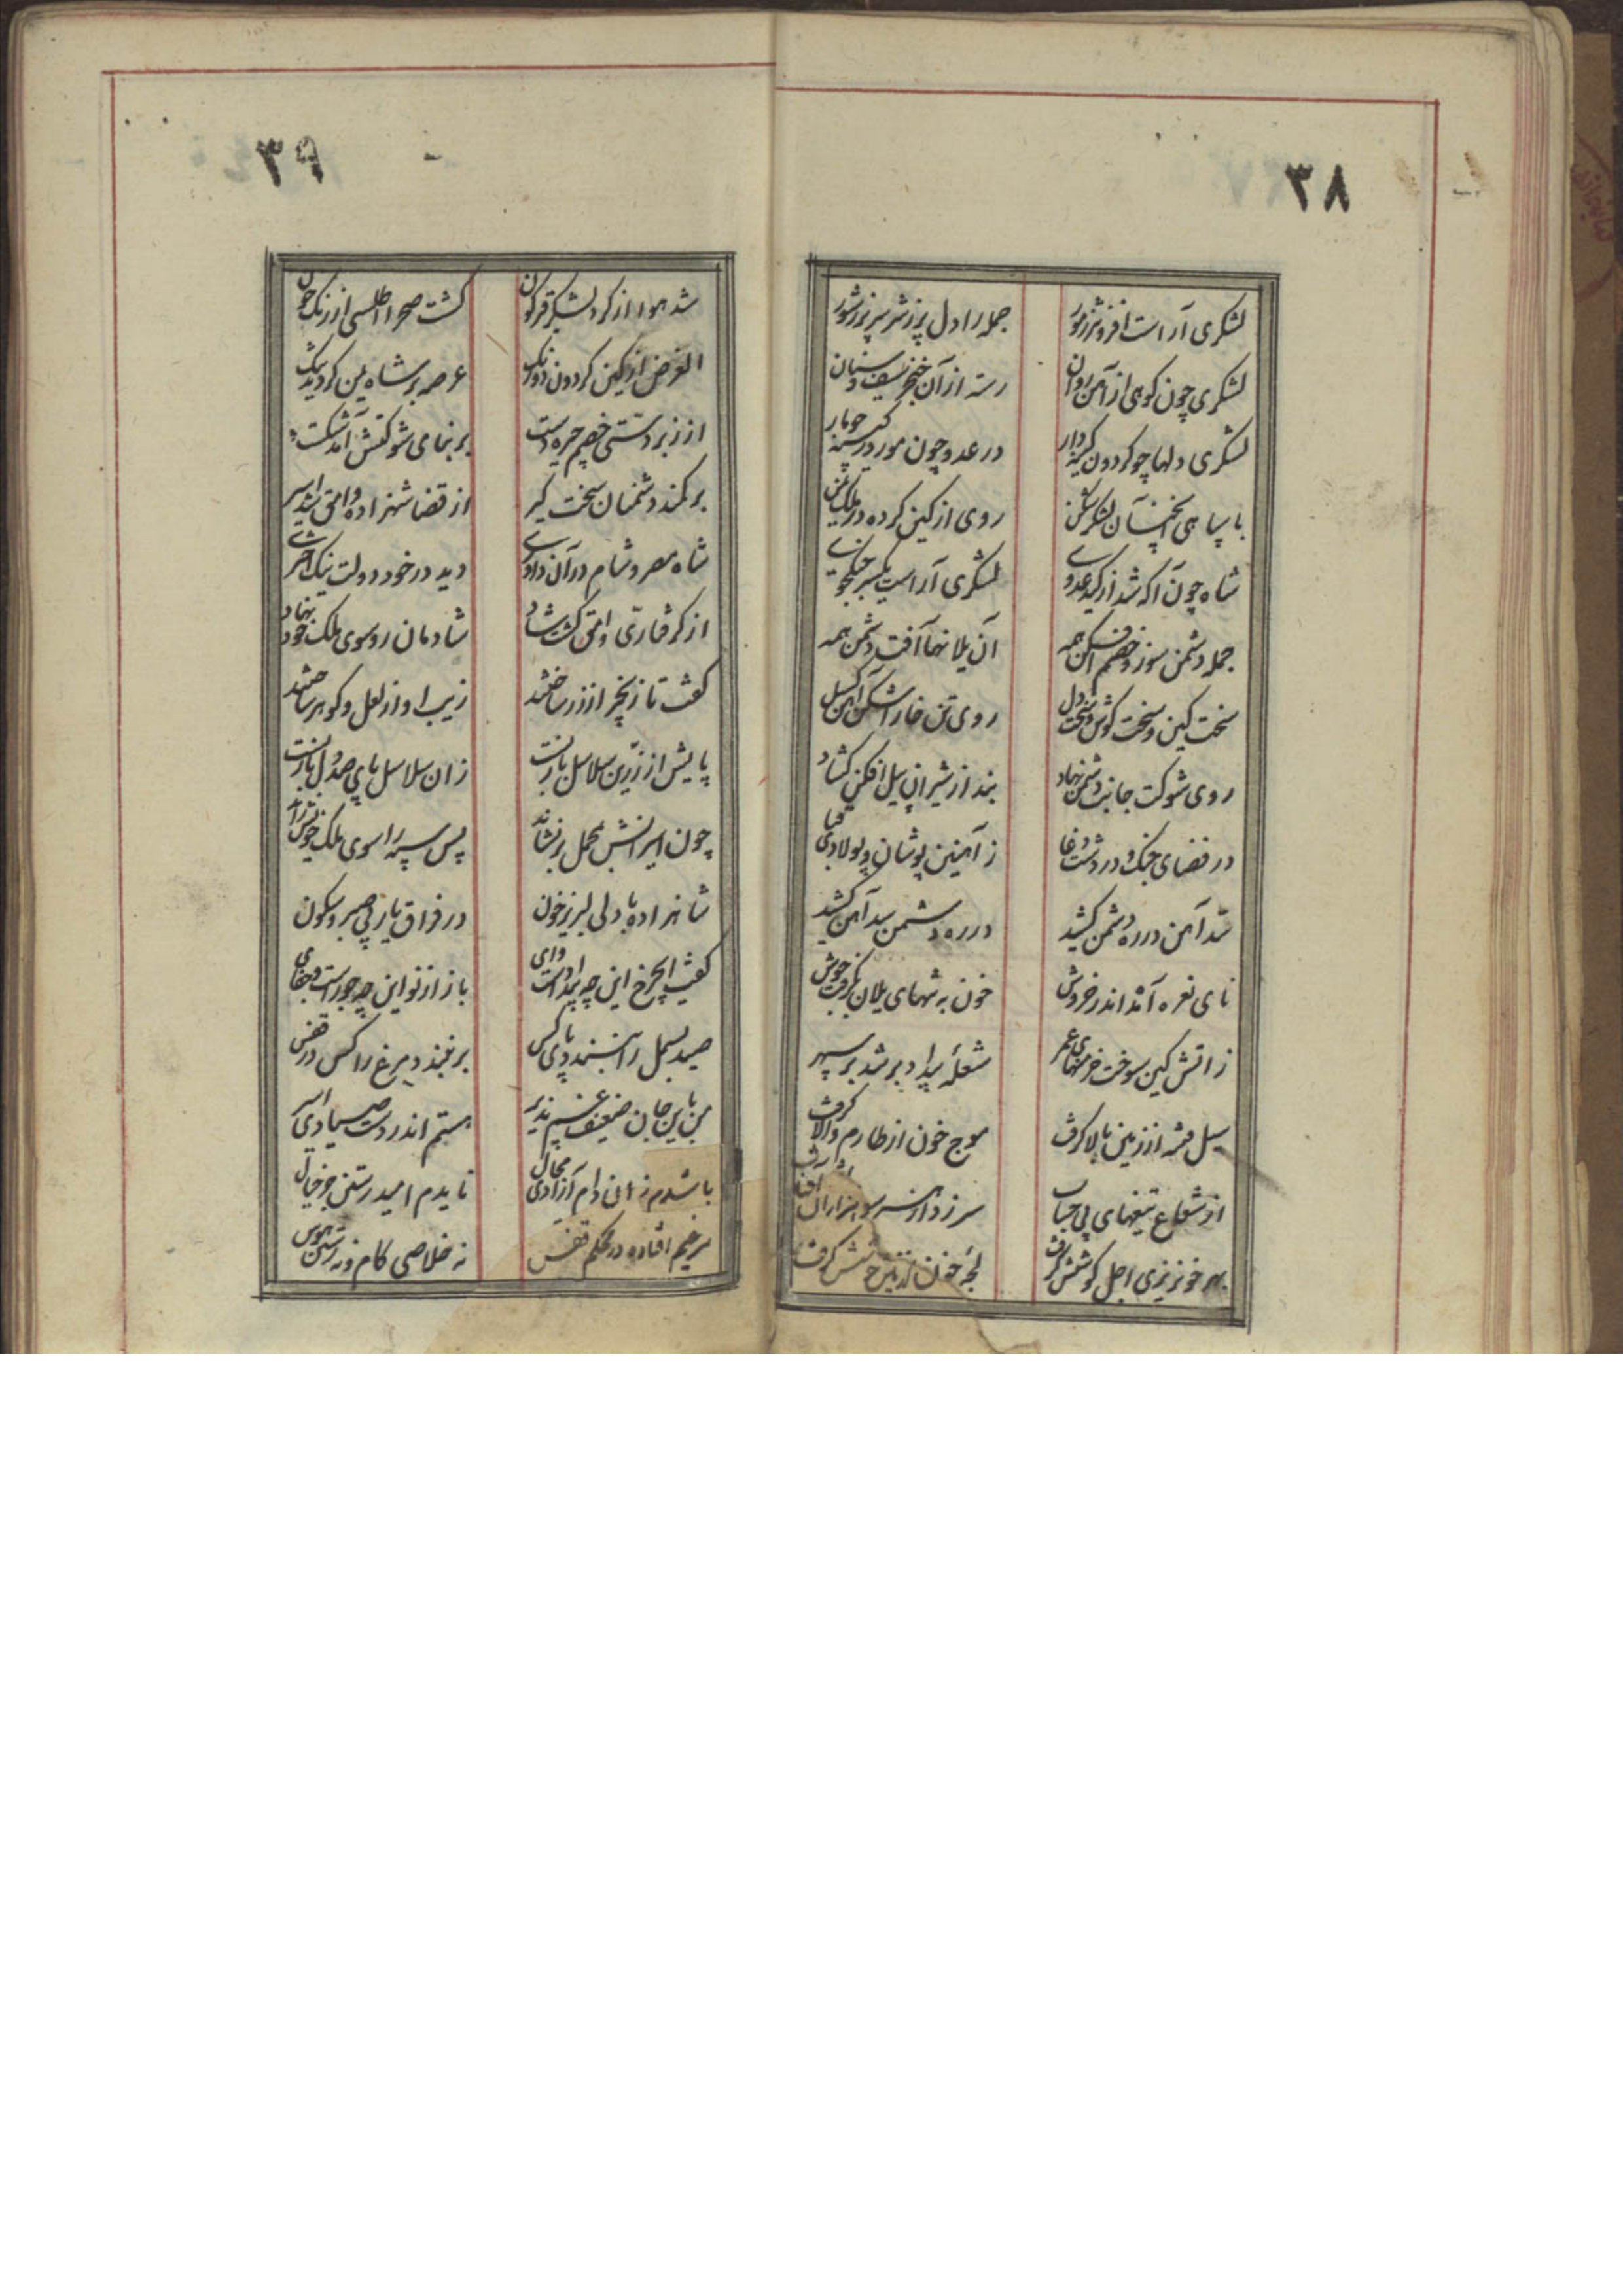 ۳۸
لشکری آراست افزونتر ز مور جمله را دل پر ز شر سر پر ز شور
لشکری چون کوهی از آهن روان رسته از آن خنجر و سیف و سنان
لشکری دلها چو گردون کینه‌دار در عدو چون مور در کینه چو مار
با سپاهی اینچنان لشکرشکن روی از کین کرده در ملک یمن
شاه چون آگه شد از کید عدوی لشکری آراست یکسر جنگجوی
جمله دشمن سوز و خصم افکن همه آن یلان‌ها آفت دشمن همه
سخت کین و سخت کوش و سخت دل روی تن خارا شکن آهن گسل
روی شوکت جانب دشمن نهاد بند از شیران پیل افکن گشاد
در فضای جنگ و در دشت وغا ز آهنین پوشان و پولادی قبا
سد آهن در ره دشمن کشید در ره دشمن سد آهن کشید
نای نعره آمد اندر خروش خون به تنهای یلان بگرفت جوش
ز آتش کین سوخت خرمنهای عمر شعلهٔ بیداد بر شد بر سپهر
سیل فتنه از زمین بالا گرفت موج خون از طارم والا گرفت
از شعاع تیغهای بی حجاب سر زد از هر سو هزاران آفتاب
بهر خونریزی اجل کوشش گرفت لجهٔ خون در زمین جوشش گرفت
۳۹
شد هوا از گرد لشکر قیرگون گشت صحرا اطلسی از رنگ خون
الغرض از کین گردون دو رنگ عرصه بر شاه یمن گردید تنگ
از زبردستی خصم چیره دست بر بنای شوکتش آمد شکست
بر کمند دشمنان سخت گیر از قضا شهزاده وامق شد اسیر
شاه مصر و شام در آن داوری دید در خود دولت نیک اختری
از گرفتاری وامق گشت شاد شادمان رو سوی ملک خود نهاد
گفت تا زنجیر از زر ساختند زیب او از لعل و گوهر ساختند
پایش از زرین سلاسل باز بست زان سلاسل پای صد دل باز بست
چون اسیرانش بمحمل بر نشاند پس سپه را سوی ملک خویش راند
شاهزاده با دلی لبریز خون در فراق یار بی صبر و سکون
گفت ایچرخ این چه بیداد است وای باز از نو این چه جور است و جفای
صید بسمل را نبندد پای کس بر نبندد مرغ را کس در قفس
من باین جان ضعیف غم پذیر هستم اندر دست صیادی اسیر
باشدم زان دام آزادی محال نایدم امید رستن جز خیال
مرغیم افتاده در محکم قفس نه خلاصی کام و نه رستن هوس